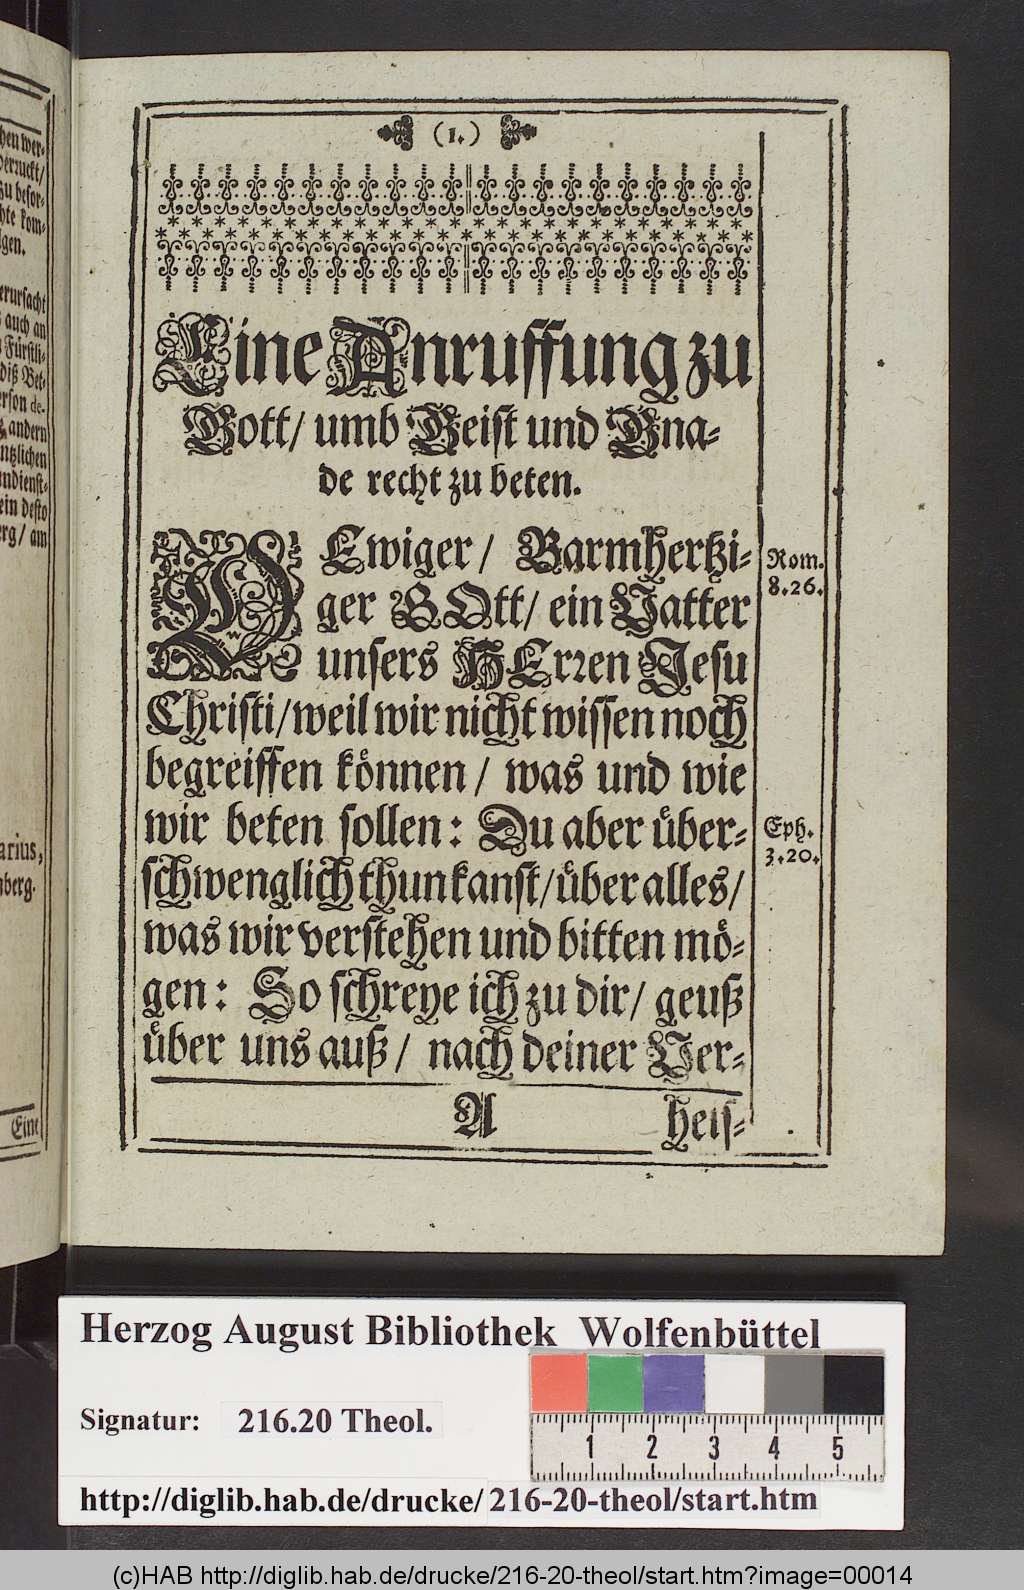 hen wer-
verruckt/
zu besor-
hte kom-
lgen.
erursacht
auch an
Fürstli-
diß Bet-
erson de-
andern
ntzlichen
ndienst-
ein desto
erg/ am
arius,
nberg.
Eine
(1.)
Eine Anruffung zu
Gott/ umb Geist und Gna-
de recht zu beten.
Ewiger/ Barmhertzi-
ger GOtt/ ein Vatter
unsers HErren Jesu
Christi/ weil wir nicht wissen noch
begreiffen können/ was und wie
wir beten sollen: Du aber über-
schwenglich thun kanst/ über alles/
was wir verstehen und bitten mö-
gen: So schreye ich zu dir/ geuß
über uns auß/ nach deiner Ver-
A heis-
Rom.
8.26.
Eph.
3.20.
Herzog August Bibliothek Wolfenbüttel
Signatur: 216.20 Theol.
1 2 3 4 5
http://diglib.hab.de/drucke/216-20-theol/start.htm
(c)HAB http://diglib.hab.de/drucke/216-20-theol/start.htm?image=00014